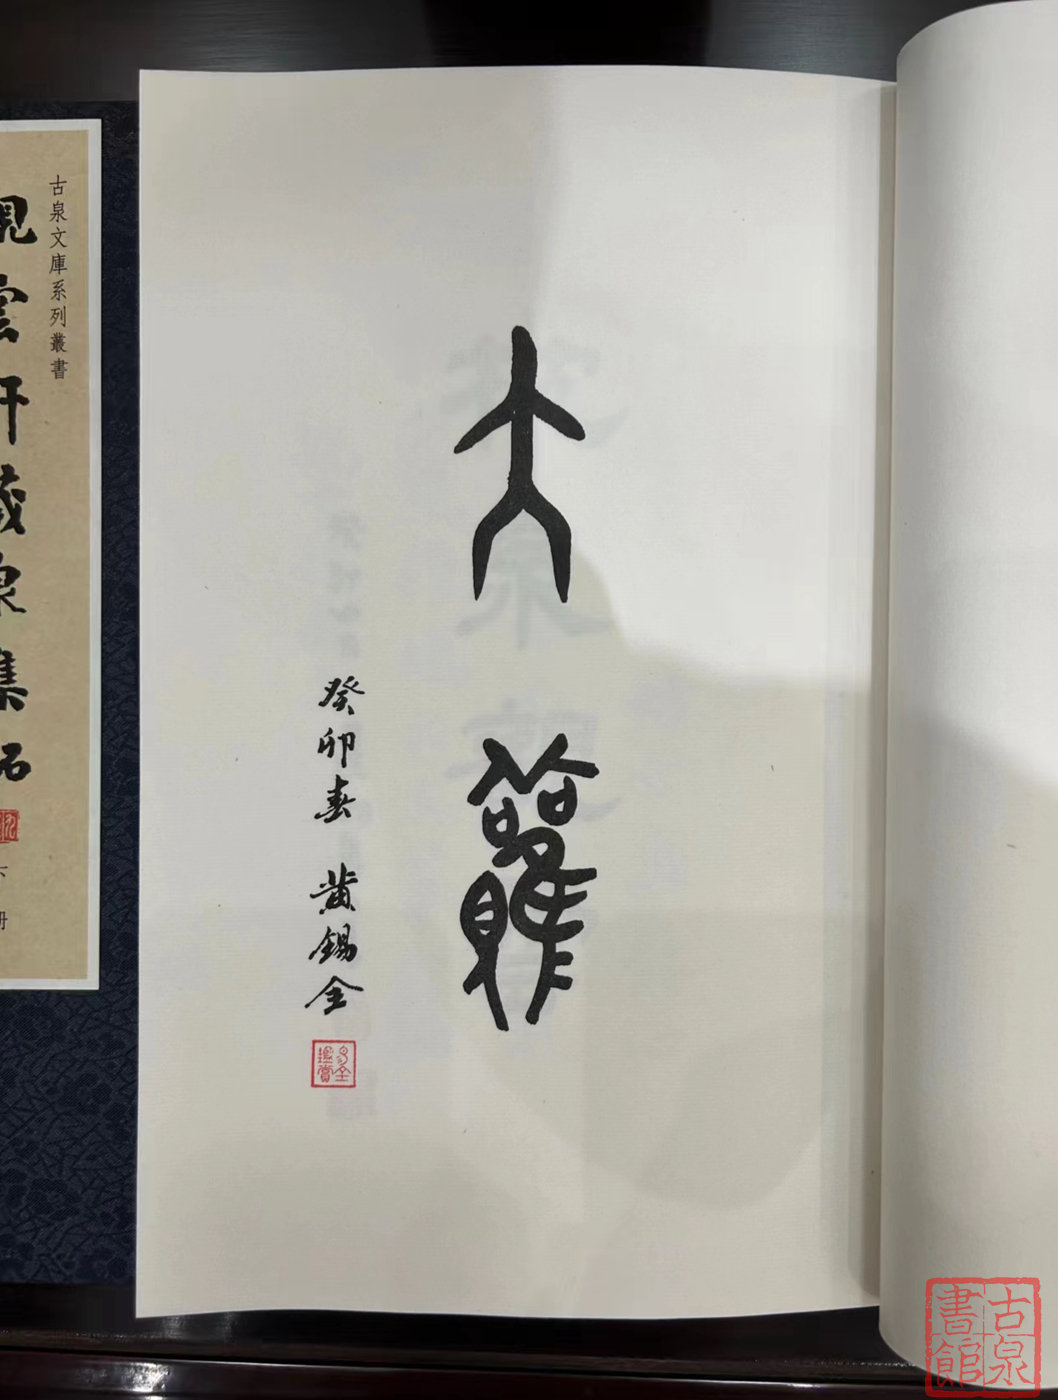 大觀
癸卯春 黃錫全
古泉文庫系列叢書
觀雲軒藏泉集拓
下册
古泉書館